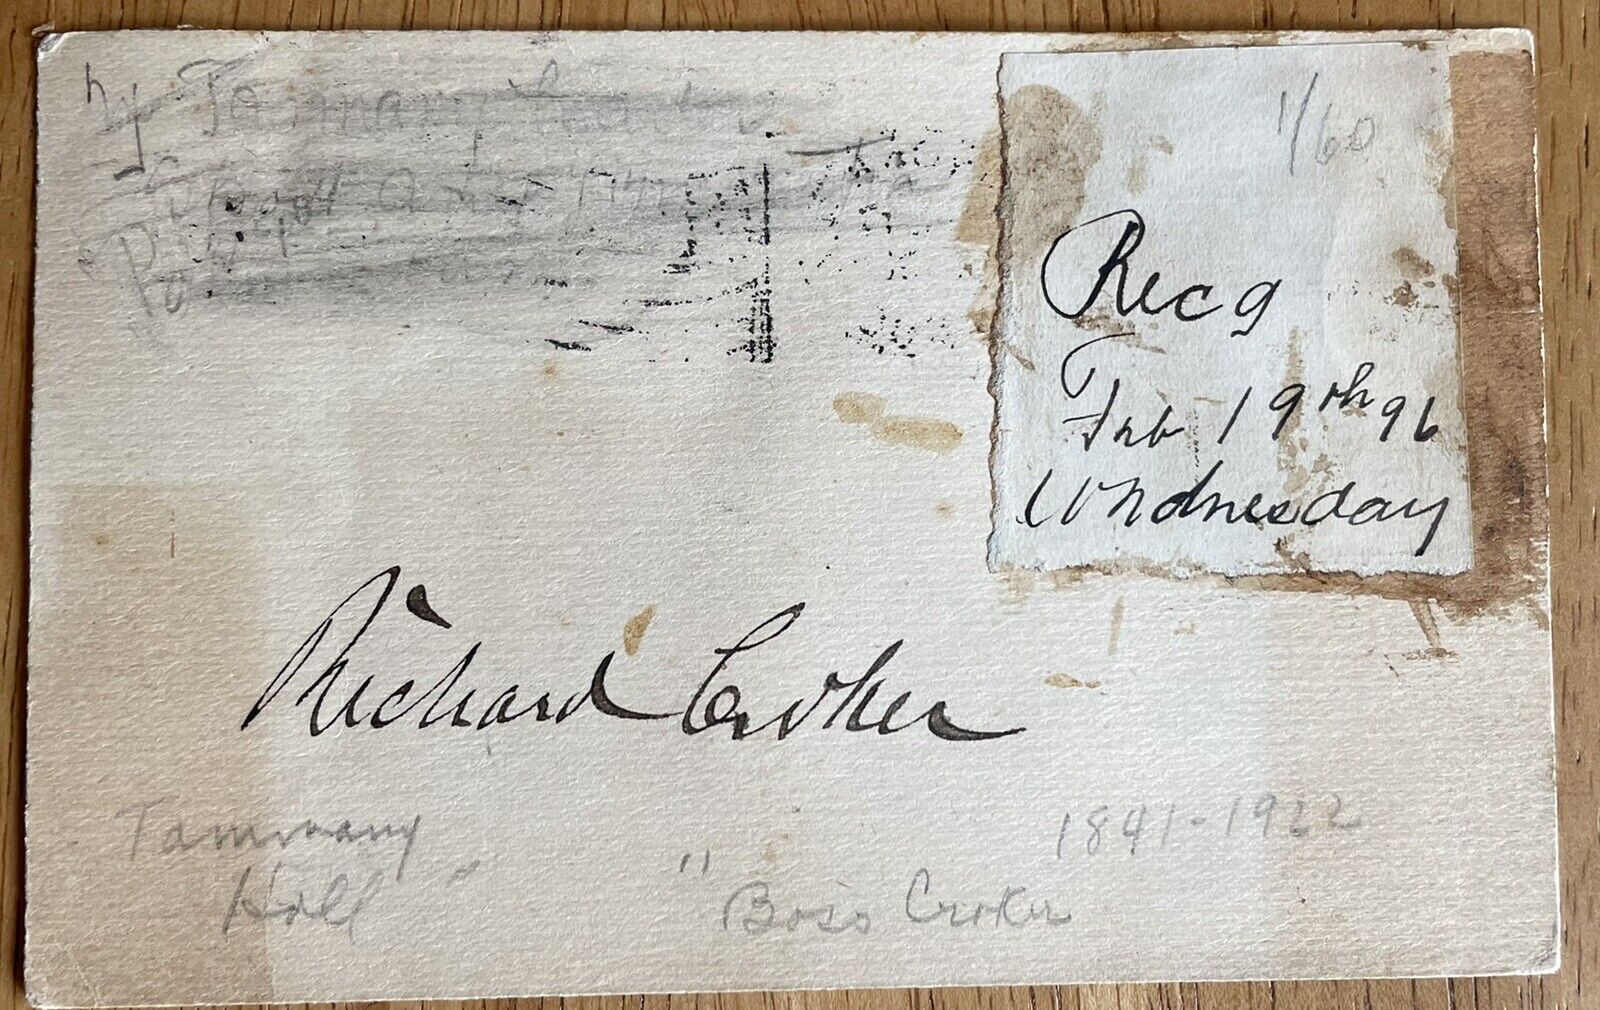 Ny Tammany
1/60
Recd
Feb 19th 96
Wednesday
Richard Croker
Tammany
Hall "
1841-1922
" Boss Croker